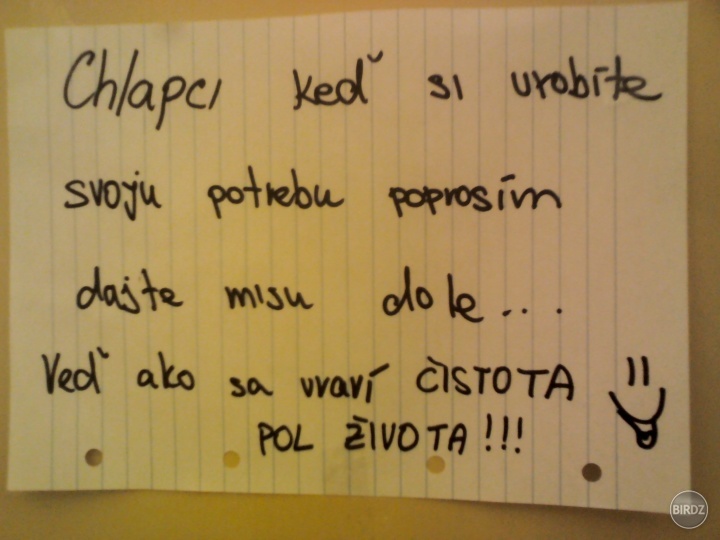 Chlapci keď si urobíte
svoju potrebu poprosím
dajte misu dole....
Veď ako sa vraví ČISTOTA
POL ŽIVOTA!!!
BIRDZ